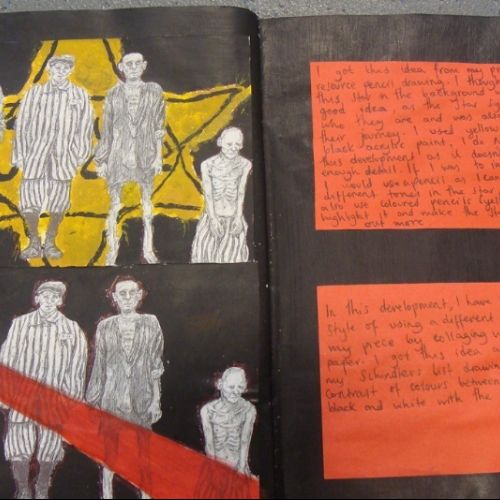 I got this idea from my pr
resource pencil drawing. I though
this star in the background
good idea, as the star
who they are and was als
their journey. I used yellow
black acrylic paint, I do n
this development as it doesn
enough detail. If I was to
I would use a pencil as I can
different tones in the star
also use coloured pencils (yell
highlight it and make the
out more
In this development, I have
style of using a different
my piece by collaging
paper. I got this idea
my Schindlers list drawin
contrast of colours between
black and white with the